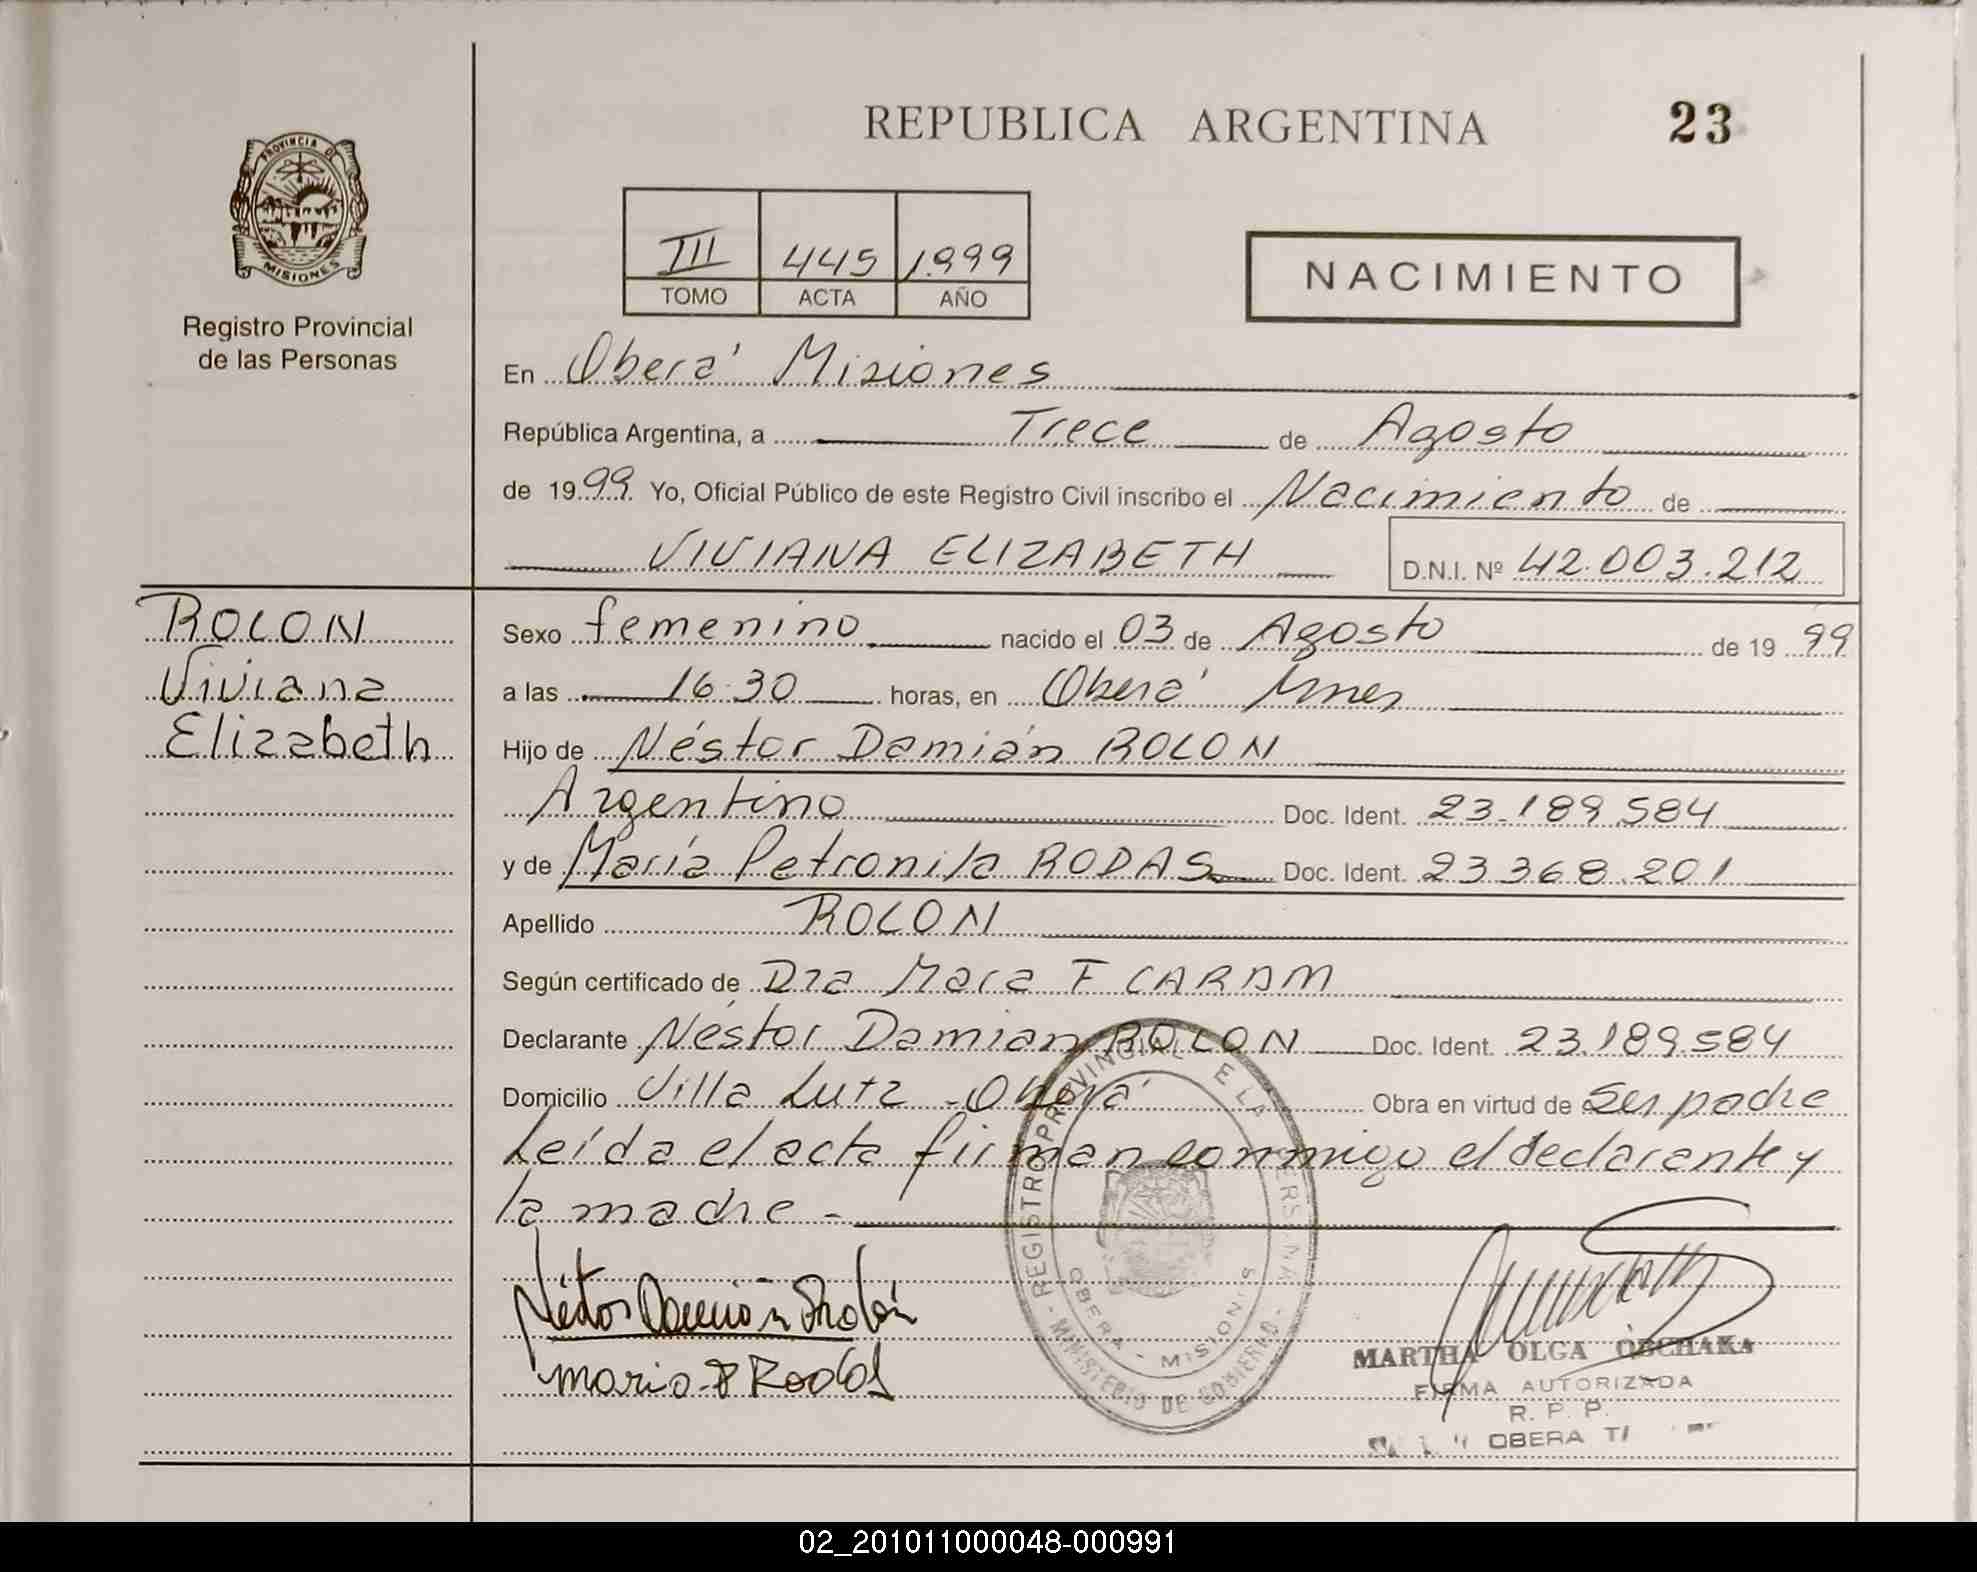 REPUBLICA ARGENTINA
23
PROVINCIA DE
MISIONES
Registro Provincial
de las Personas
III 445 1999
TOMO ACTA AÑO
NACIMIENTO
En Oberá Misiones
República Argentina, a Trece de Agosto
de 1999 Yo, Oficial Público de este Registro Civil inscribo el Nacimiento de
VIVIANA ELIZABETH D.N.I. Nº 42.003.212
ROLON
Viviana
Elizabeth
Sexo femenino nacido el 03 de Agosto de 1999
a las 16:30 horas, en Oberá Mnes
Hijo de Néstor Damián ROLON
Argentino Doc. Ident. 23.189.584
y de María Petronila RODAS Doc. Ident. 23.368.201
Apellido ROLON
Según certificado de Dra Mara F CARAM
Declarante Néstor Damian ROLON Doc. Ident. 23.189.584
Domicilio Villa Lutz - Oberá Obra en virtud de ser padre
Leída el acta firman conmigo el declarante y
la madre -
Néstor Damián Rolón
Maria P Rodas
REGISTRO PROVINCIAL DE LAS PERSONAS
OBERA - MISIONES
MINISTERIO DE GOBIERNO
MARTHA OLGA OBCHAKA
FIRMA AUTORIZADA
R. P. P.
OBERA
02_201011000048-000991